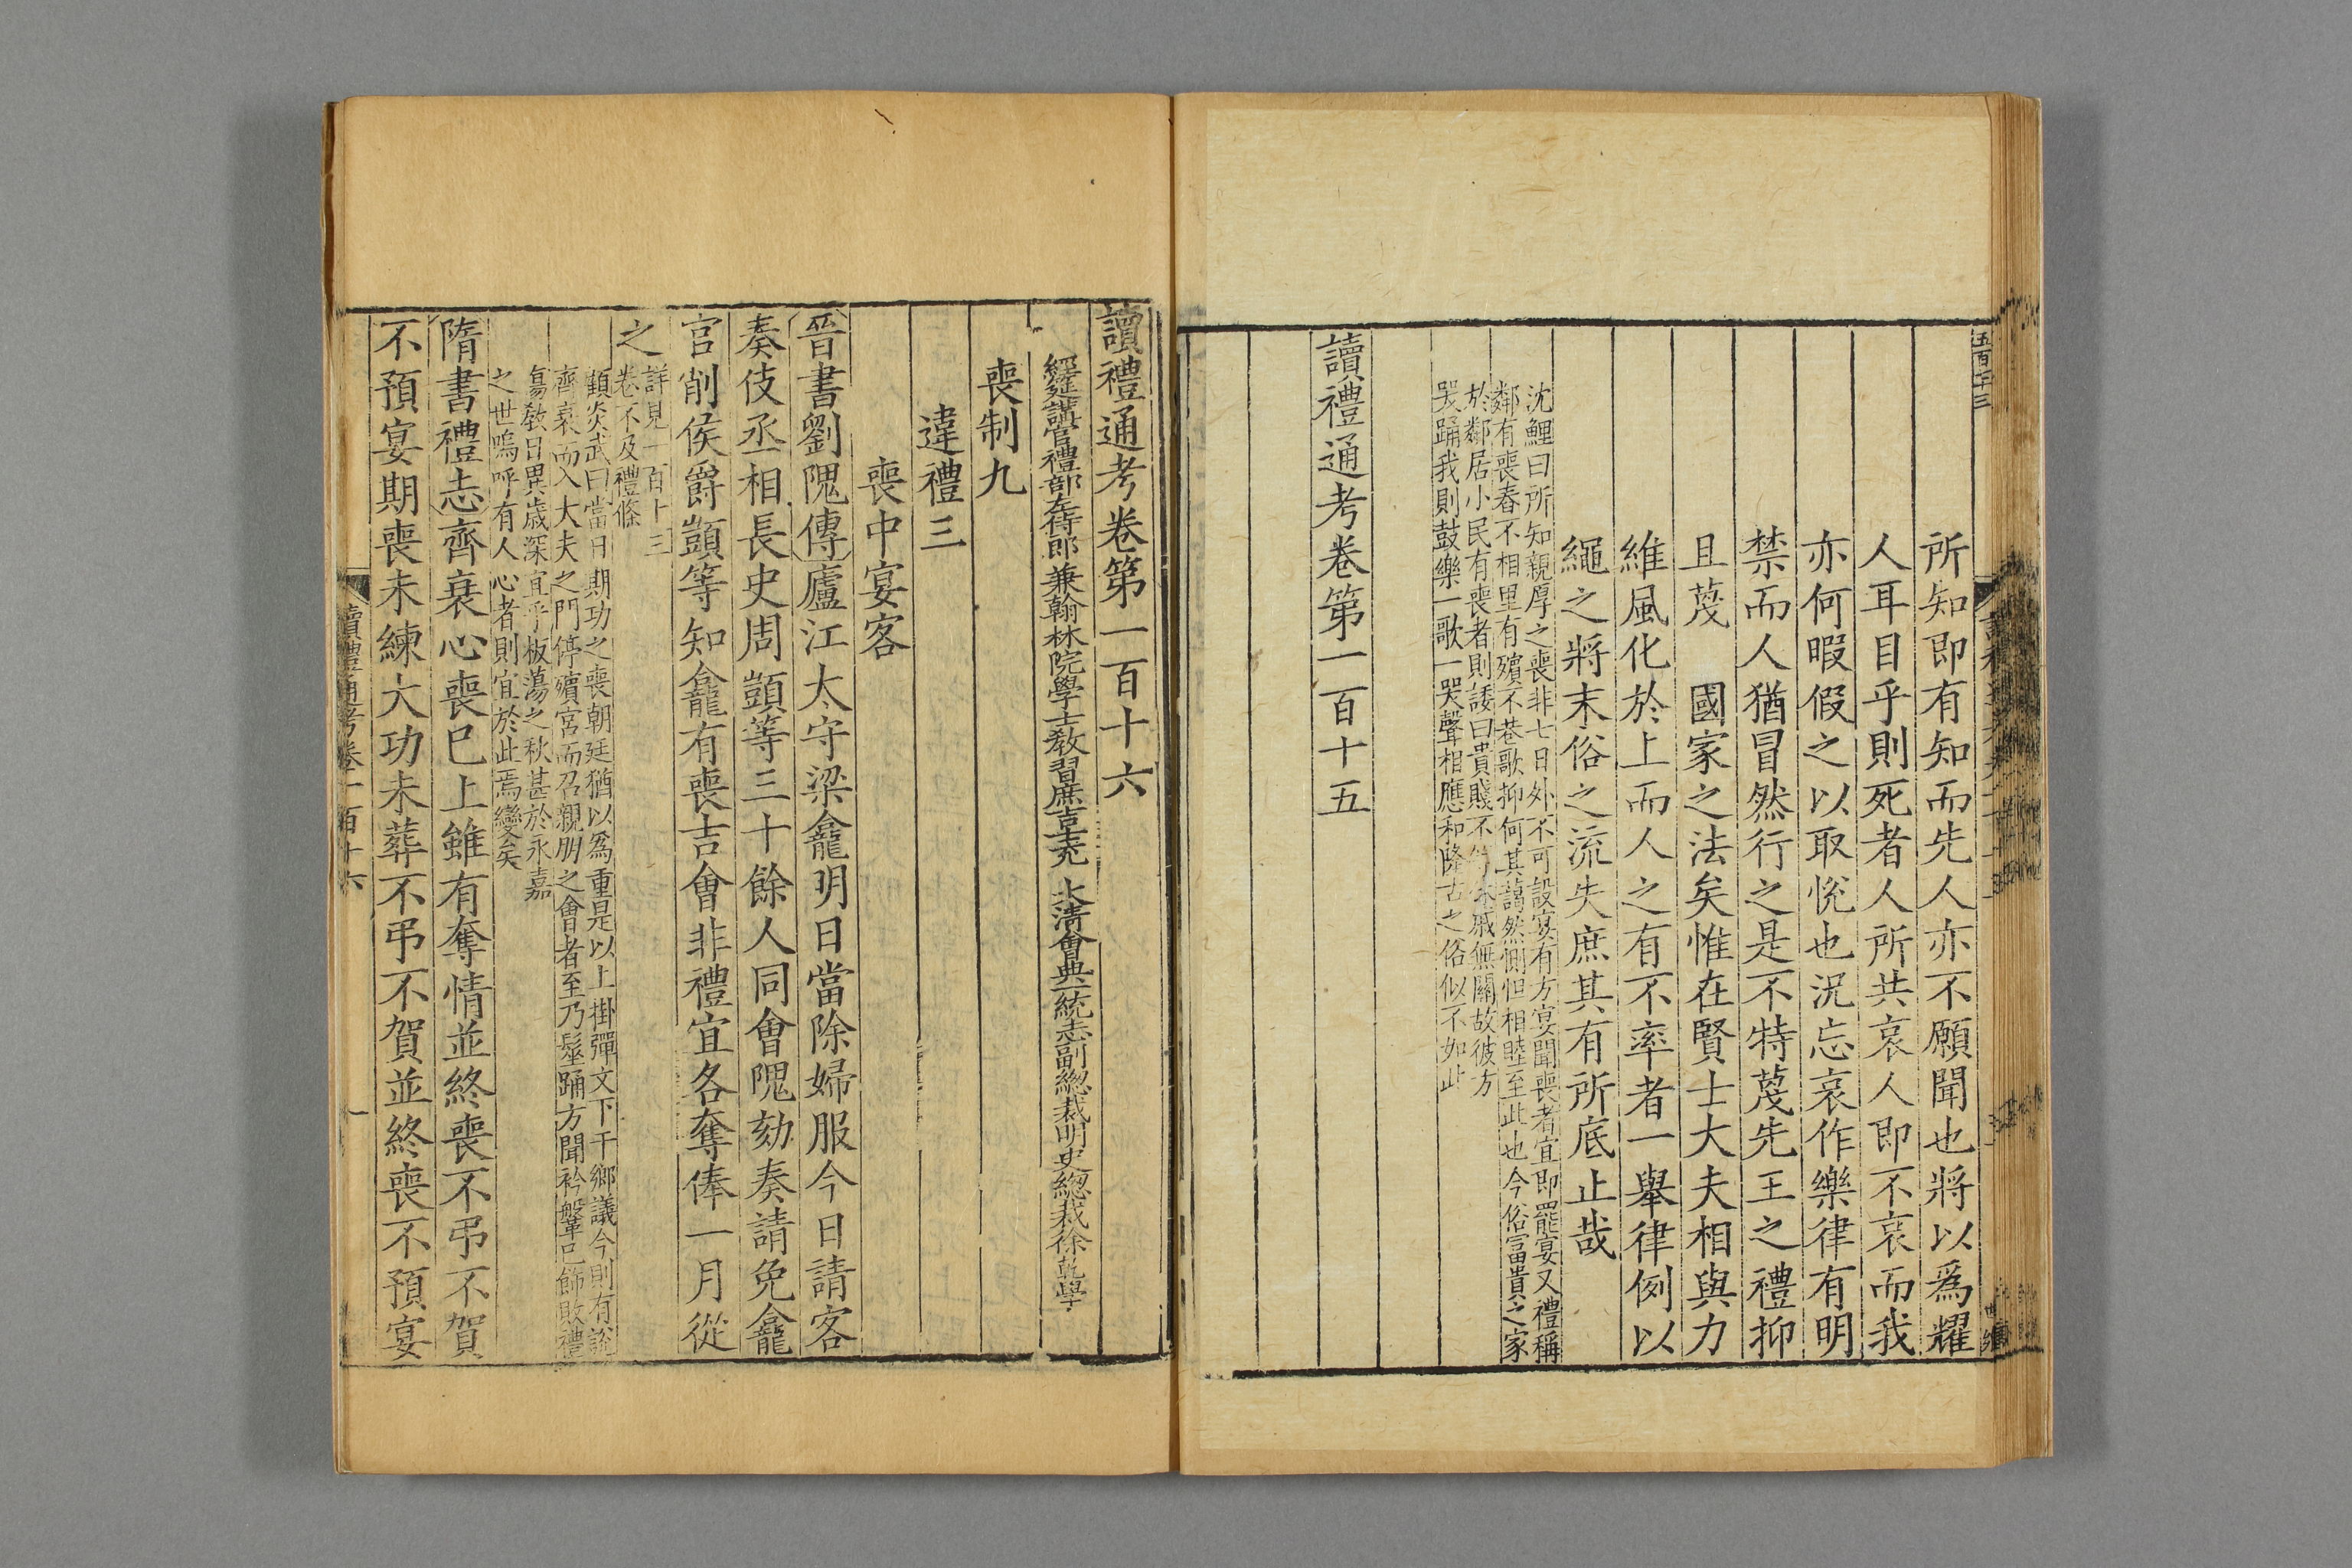 所知即有知而先人亦不願聞也將以爲耀
人耳目乎則死者人所共哀人即不哀而我
亦何暇假之以取悅也況忘哀作樂律有明
禁而人猶冒然行之是不特蔑先王之禮抑
且蔑　國家之法矣惟在賢士大夫相與力
維風化於上而人之有不率者一舉律例以
繩之將末俗之流失庶其有所底止哉
沈鯉曰所知親厚之喪非七日外不可設宴有方宴聞喪者宜即罷宴又禮稱
鄰有喪舂不相里有殯不巷歌抑何其藹然惻怛相睦至此也今俗富貴之家
於鄰居小民有喪者則諉曰貴賤不休戚無關故彼方
哭踊我則鼓樂一歌一哭聲相應和降古之俗似不如此
讀禮通考卷第一百十五
讀禮通考卷第一百十六
經筵講官禮部左侍郎兼翰林院學士敎習庶吉士充　大清會典一統志副總裁明史總裁徐乾學
喪制九
違禮三
喪中宴客
晉書劉隗傳廬江太守梁龕明日當除婦服今日請客
奏伎丞相長史周顗等三十餘人同會隗劾奏請免龕
官削侯爵顗等知龕有喪吉會非禮宜各奪俸一月從
之
詳見一百十三
卷不及禮條
顧炎武曰當日期功之喪朝廷猶以爲重是以上掛彈文下干鄉議今則有說
齊衰而入大夫之門停殯宮而召親朋之會者至乃髽踊方聞衿鞶已飾敗禮
傷敎日異歲深宜乎板蕩之秋甚於永嘉
之世嗚呼有人心者則宜於此焉變矣
隋書禮志齊衰心喪已上雖有奪情並終喪不弔不賀
不預宴期喪未練大功未葬不弔不賀並終喪不預宴
讀禮通考卷一百十六
一